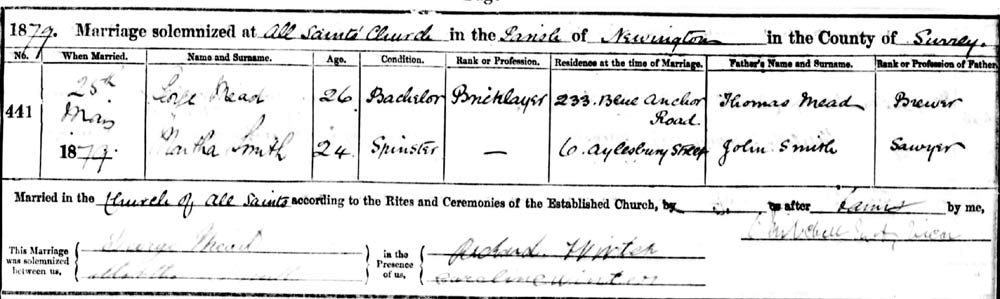 1879. Marriage solemnized at All Saints' Church in the Parish of Newington in the County of Surrey.
No. When Married. Name and Surname. Age. Condition. Rank or Profession. Residence at the time of Marriage. Father's Name and Surname. Rank or Profession of Father.
441 25th May 1879. George Mead 26 Bachelor Bricklayer 233 Blue Anchor Road. Thomas Mead Brewer
Martha Smith 24 Spinster — 6 Aylesbury Street John Smith Sawyer
Married in the Church of All Saints according to the Rites and Ceremonies of the Established Church, by or after Banns by me,
Vicar
This Marriage was solemnized between us, George Mead in the Presence of us, Richard Winter
Caroline Winter